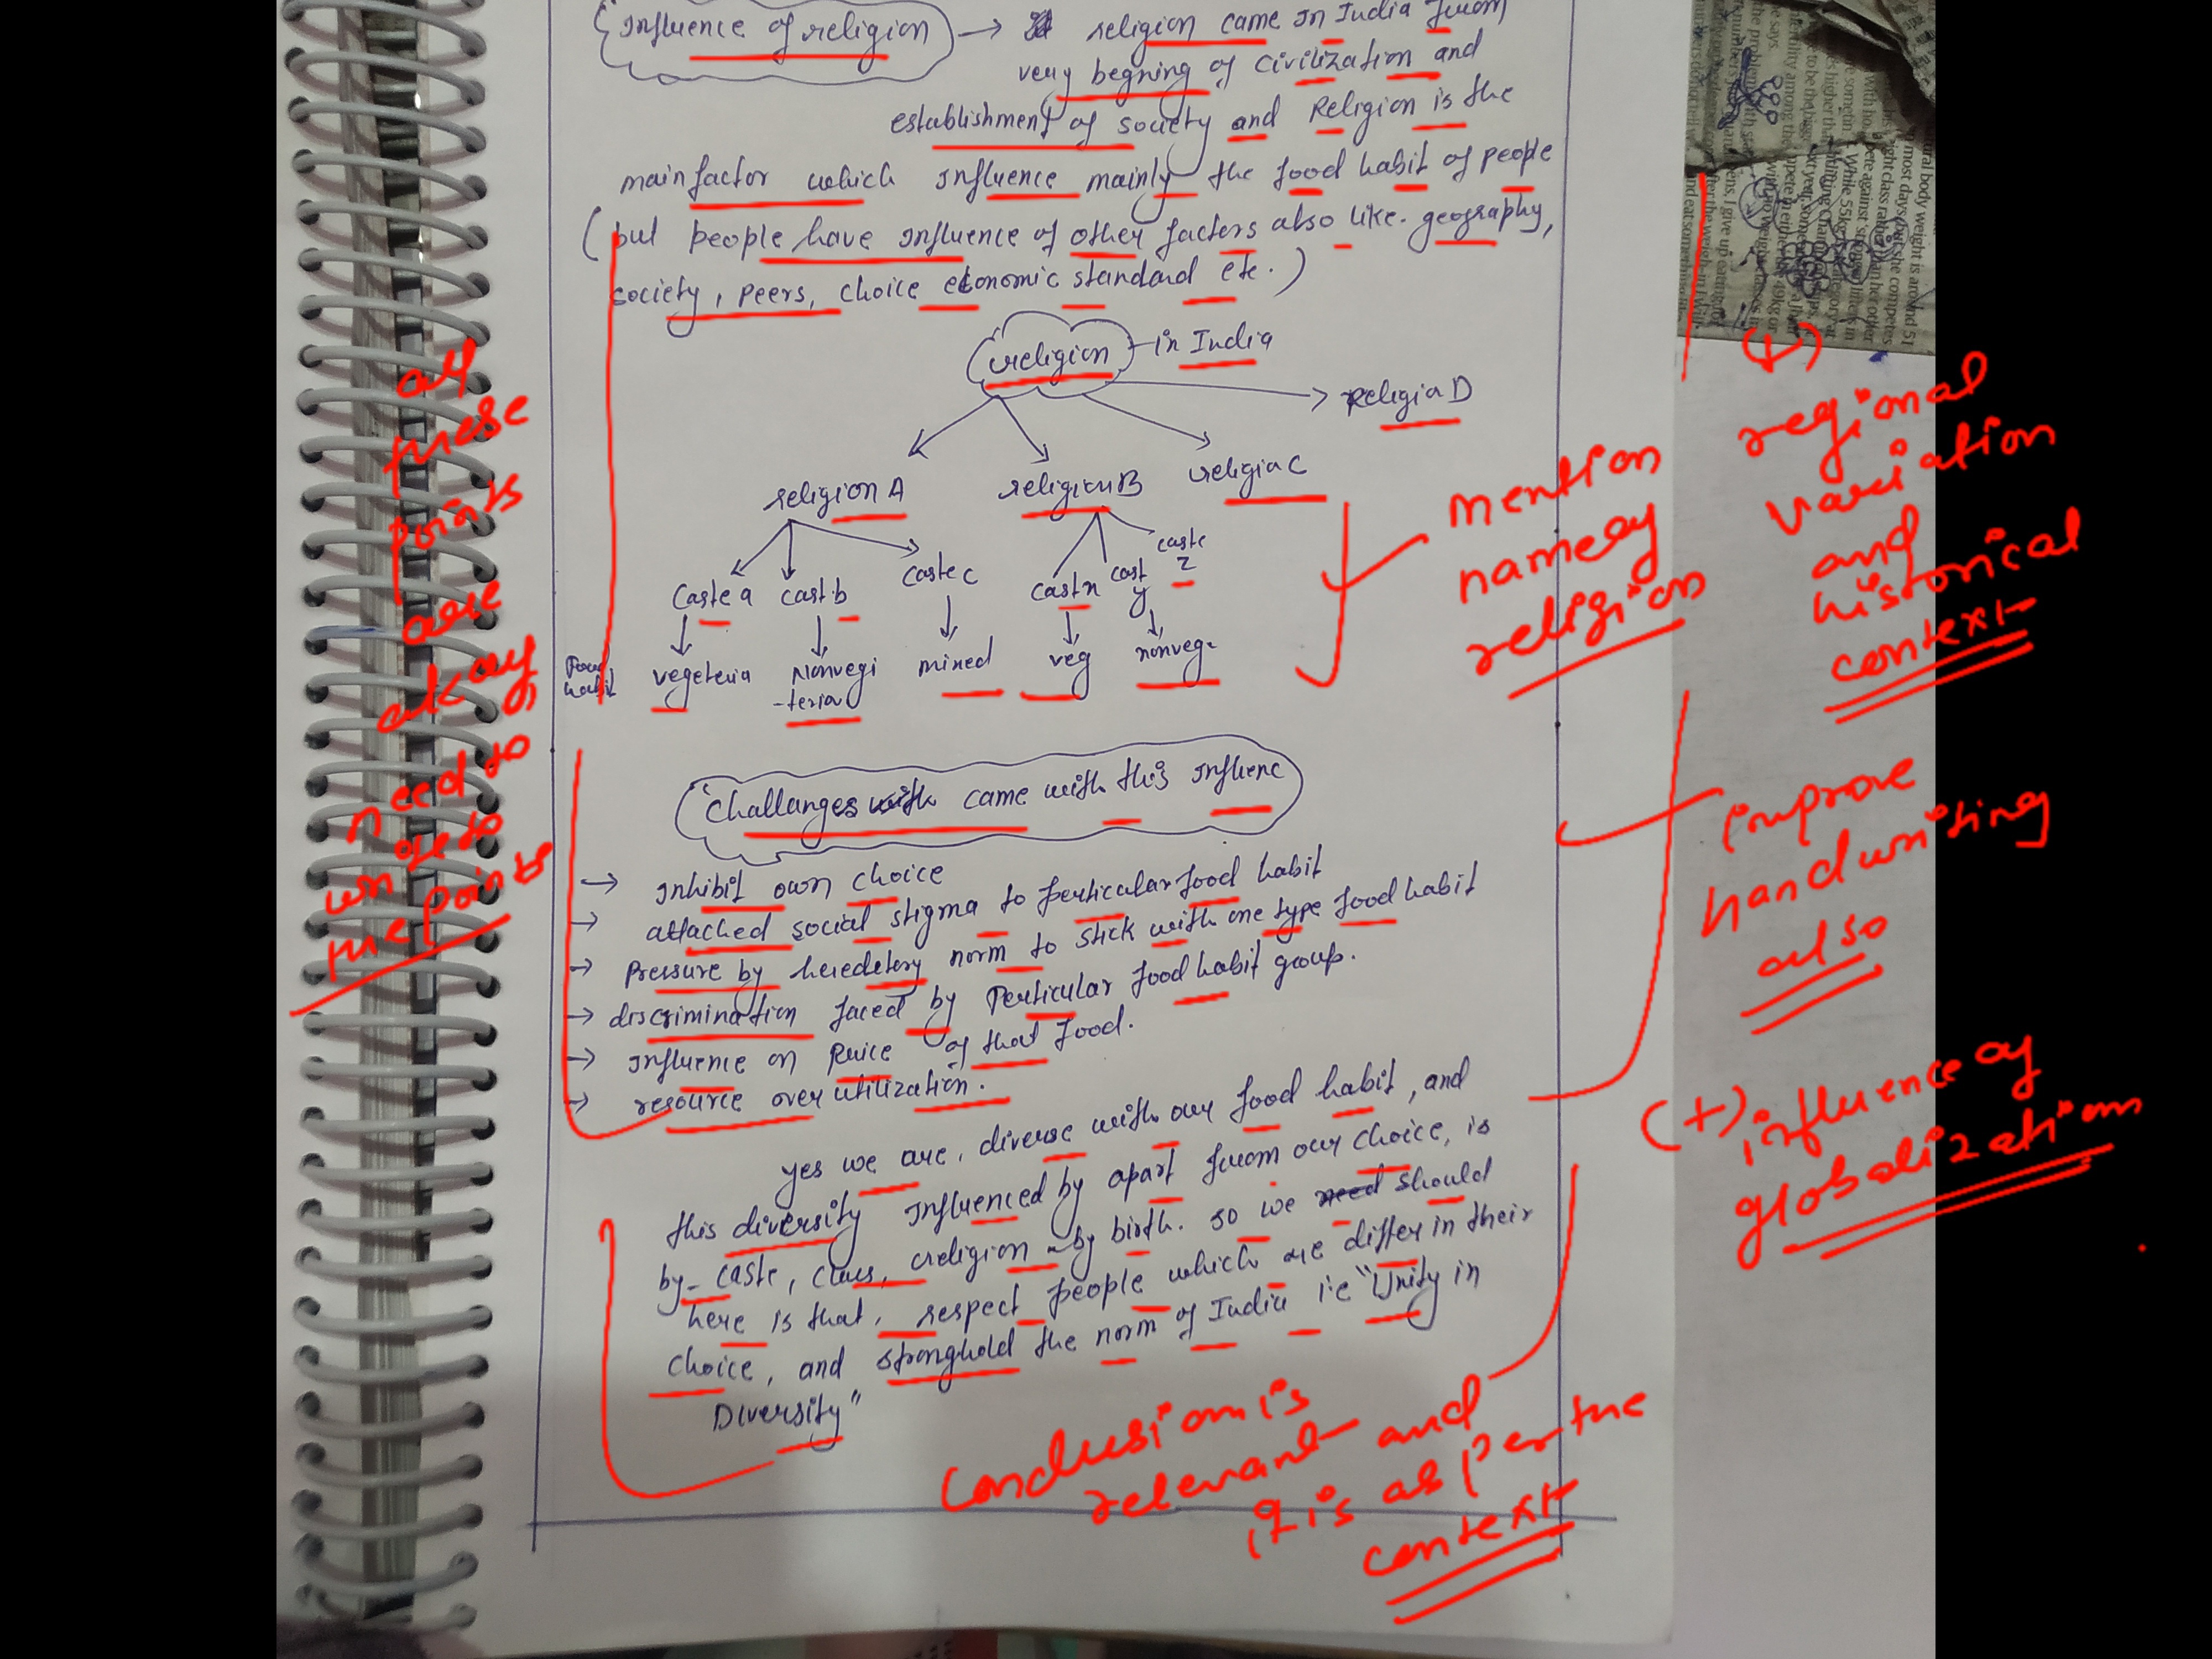 Influence of religion → religion came in India from
very begning of civilization and
establishment of society and Religion is the
main factor which influence mainly the food habit of people
(but people have influence of other factors also like- geography,
society, peers, choice economic standard etc.)
religion - in India
religion A
religion B
religia C
Religia D
Caste a
cast b
caste c
cast x
cast y
caste z
Food habit
vegeteria
Nonvegi
-teria
mixed
veg
nonveg-
Challanges with came with this influenc
→ Inhibit own choice
→ attached social stigma to perticular food habit
→ Pressure by heredetery norm to stick with one type food habit
→ discrimination faced by Perticular food habit group.
→ influence on Price of that food.
→ resource over utilization.
yes we are, diverse with our food habit, and
this diversity influenced by apart from our choice, is
by- caste, class, religion - by birth. so we need should
here is that, respect people which are differ in their
choice, and stronghold the norm of India i.e "Unity in
Diversity"
all
these
points
are
okay
need to
the points
mention
name of
religion
(+)
regional
variation
and
historical
context
improve
handwriting
also
(+) influence of
globalization
Conclusion is
relevant and
it is as per the
context